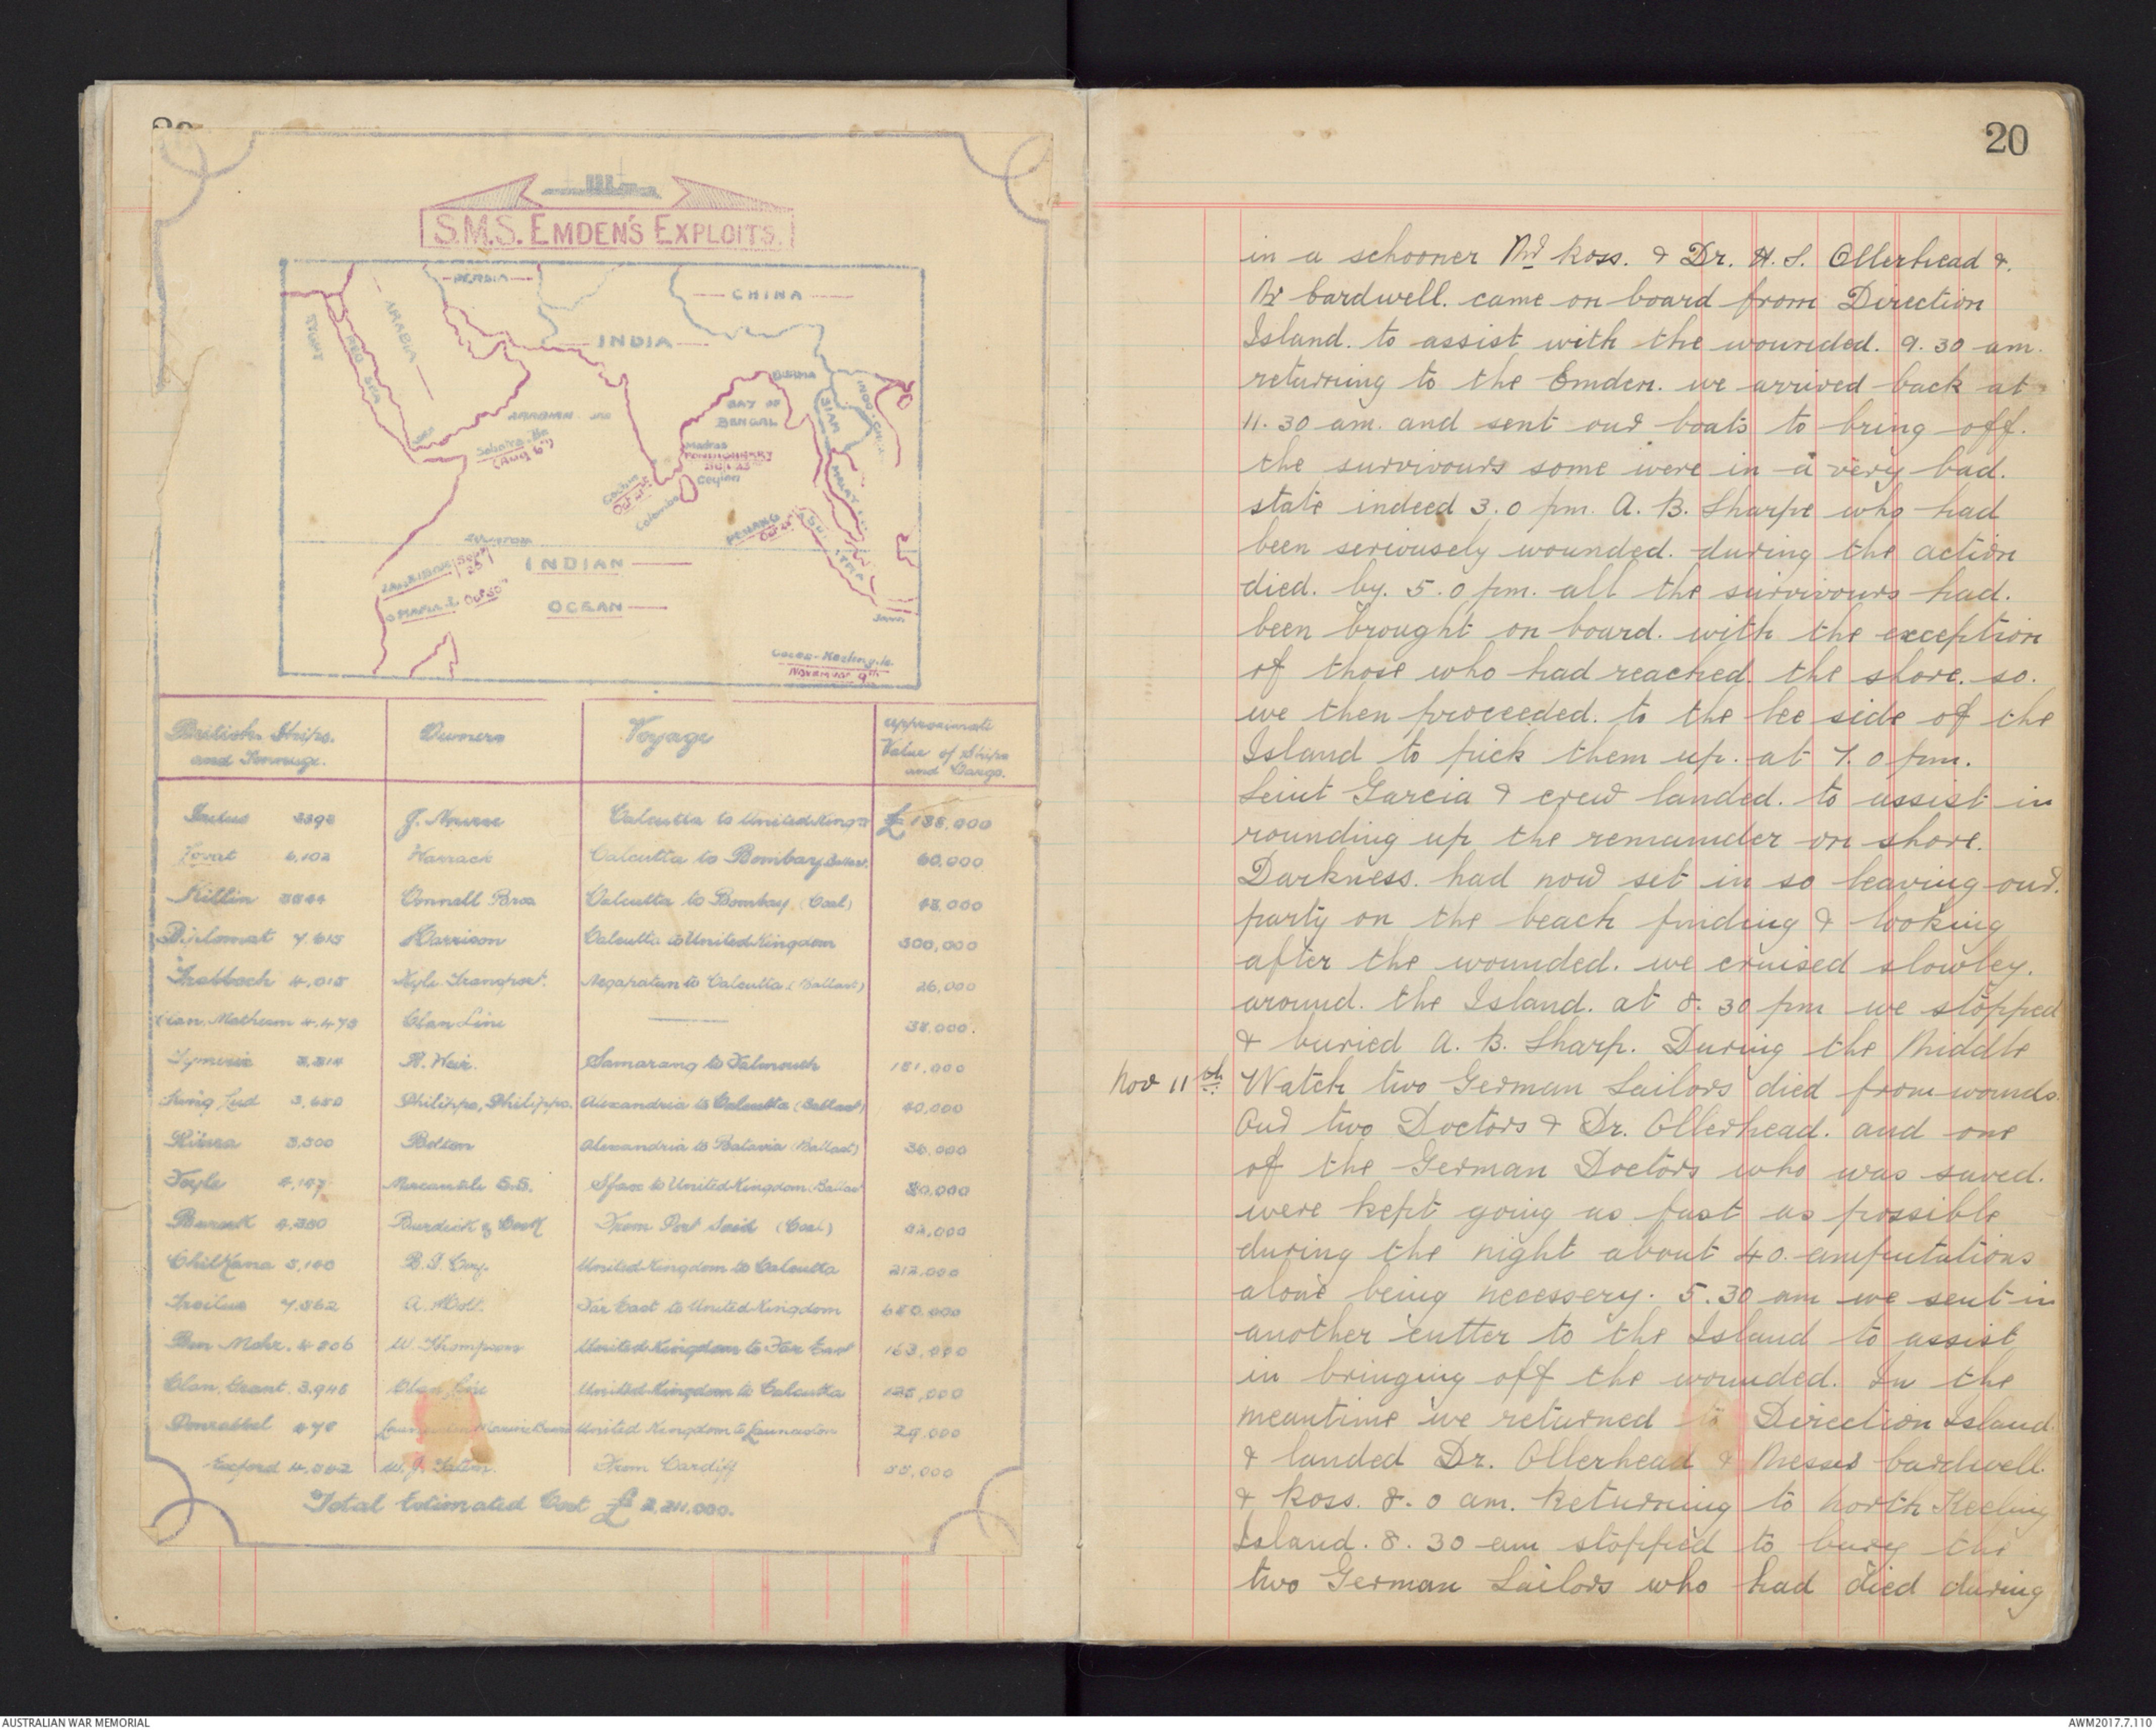 S.M.S. EMDEN'S EXPLOITS.
PERSIA
CHINA
ARABIA
INDIA
EGYPT
RED SEA
BURMA
INDO-CHINA
SIAM
BAY OF
BENGAL
ARABIAN
Madras
PONDICHERRY
Ceylon
Colombo
Cochin
MALAY
PENANG
EQUATOR
INDIAN
OCEAN
ZANZIBAR
Java
Cocos-Keeling Is.
NOVEMBER 9th
British Ships. Owners Voyage Approximate
and Tonnage. Value of Ships
and Cargo.
Indus 3393 J. Nourse Calcutta to United King £
Lovat 6,102 Warrack Calcutta to Bombay 60,000
Killin 3544 Connell Bros Calcutta to Bombay. (Coal)
Diplomat 7.615 Harrison Calcutta to United Kingdom 300,000
Trabboch 4,015 Kyle Transport. Negapatan to Calcutta. (Ballast) 26,000
Clan. Matheson 4.473 Clan Line 38,000.
Tymeric 3,314 A. Weir. Samarang to Falmouth 151,000
King Lud 3,650 Philipps, Philipps. Alexandria to Calcutta (Ballast) 40,000
3,500 Bolton Alexandria to Batavia (Ballast) 36,000
Foyle 4,147 Mercantile S.S. Sfax to United Kingdom
Buresk 4,350 Burdick & Cook From Port Said (Coal)
Chilkana 5,140 B.I. Coy. United Kingdom to Calcutta 212,000
Troilus 7,562 A. Holt. Far East to United Kingdom 650,000
Ben Mohr. 4806 W. Thompson United Kingdom to Far East 163,000
Clan. Grant. 3,948 Clan Line United Kingdom to Calcutta
Ponrabbel 478 United Kingdom to Launceston 29,000
Exford 4,542 W.J. From Cardiff 55,000
Total Estimated Cost £ 2,211,000.
20
in a schooner Mr Ross. & Dr. H. S. Ollerhead &.
Mr Cardwell. came on board from Direction
Island. to assist with the wounded. 9.30 am.
returning to the Emden. we arrived back at
11.30 am. and sent our boats to bring off.
the survivours some were in a very bad.
state indeed 3.0 pm. A. B. Sharpe who had
been seriousely wounded. during the action
died. by. 5.0 pm. all the survivours had.
been brought on board. with the exception
of those who had reached. the shore. so.
we then proceeded. to the lee side of the
Island to pick them up. at 7.0 pm.
Leiut Garcia & crew landed. to assist in
rounding up the remainder on shore.
Darkness. had now set in so leaving our.
party on the beach finding & looking
after the wounded. we cruised slowley.
around. the Island. at 8.30 pm we stopped
& buried A. B. Sharp. During the Middle
Nov 11th Watch two German Sailors died from wounds.
Our two Doctors & Dr. Ollerhead. and one
of the German Doctors who was saved.
were kept going as fast as possible
during the night about 40. amputations
alone being necessery. 5.30 am we sent in
another cutter to the Island to assist
in bringing off the wounded. In the
meantime we returned to Direction Island
& landed Dr. Ollerhead & Messrs Cardwell.
& Ross. 8.0 am. Returning to North Keeling
Island. 8.30 am stopped to bury the
two German Sailors who had died during
AUSTRALIAN WAR MEMORIAL
AWM2017.7.110